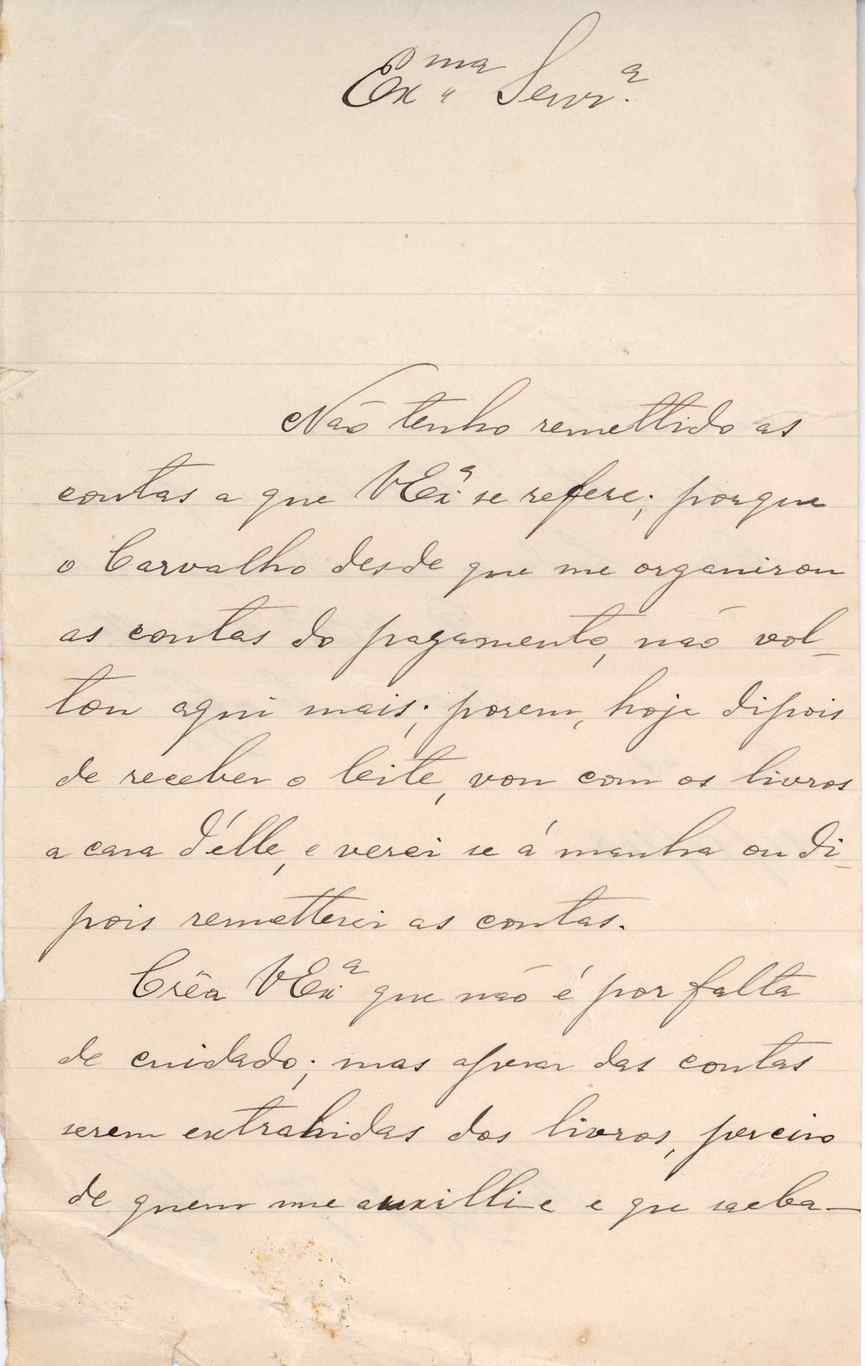 Ex.ma Senr.a
Não tenho remettido as
contas a que VEx.a se refere; porque
o Carvalho desde que me organisou
as contas do pagamento, não vol-
tou aqui mais; porem, hoje dipois
de receber o leite, vou com os livros
a casa d'élle, e verei se á manha ou di-
pois remetterei as contas.
Crêa VEx.a que não é por falta
de cuidado; mas apesar das contas
serem extrahidas dos livros, preciso
de quem me auxillie e que saeba